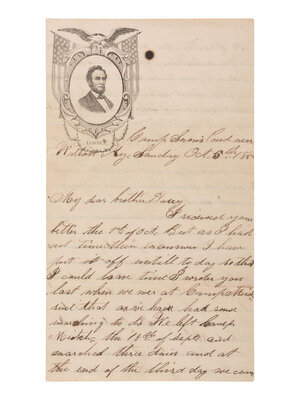 LINCOLN
Camp Swan's Pond near
Ky, Sunday Oct 5th
My dear brother Harry
I received your
letter the 1st of Oct. But as I had
not time then to answer I have
put it off untill to day so that
I could have time I wrote you
last when we were at Camp
since that as we have had some
marching to do We left Camp
the 18th of Sept. and
marched three daies and at
the end of the third day we came